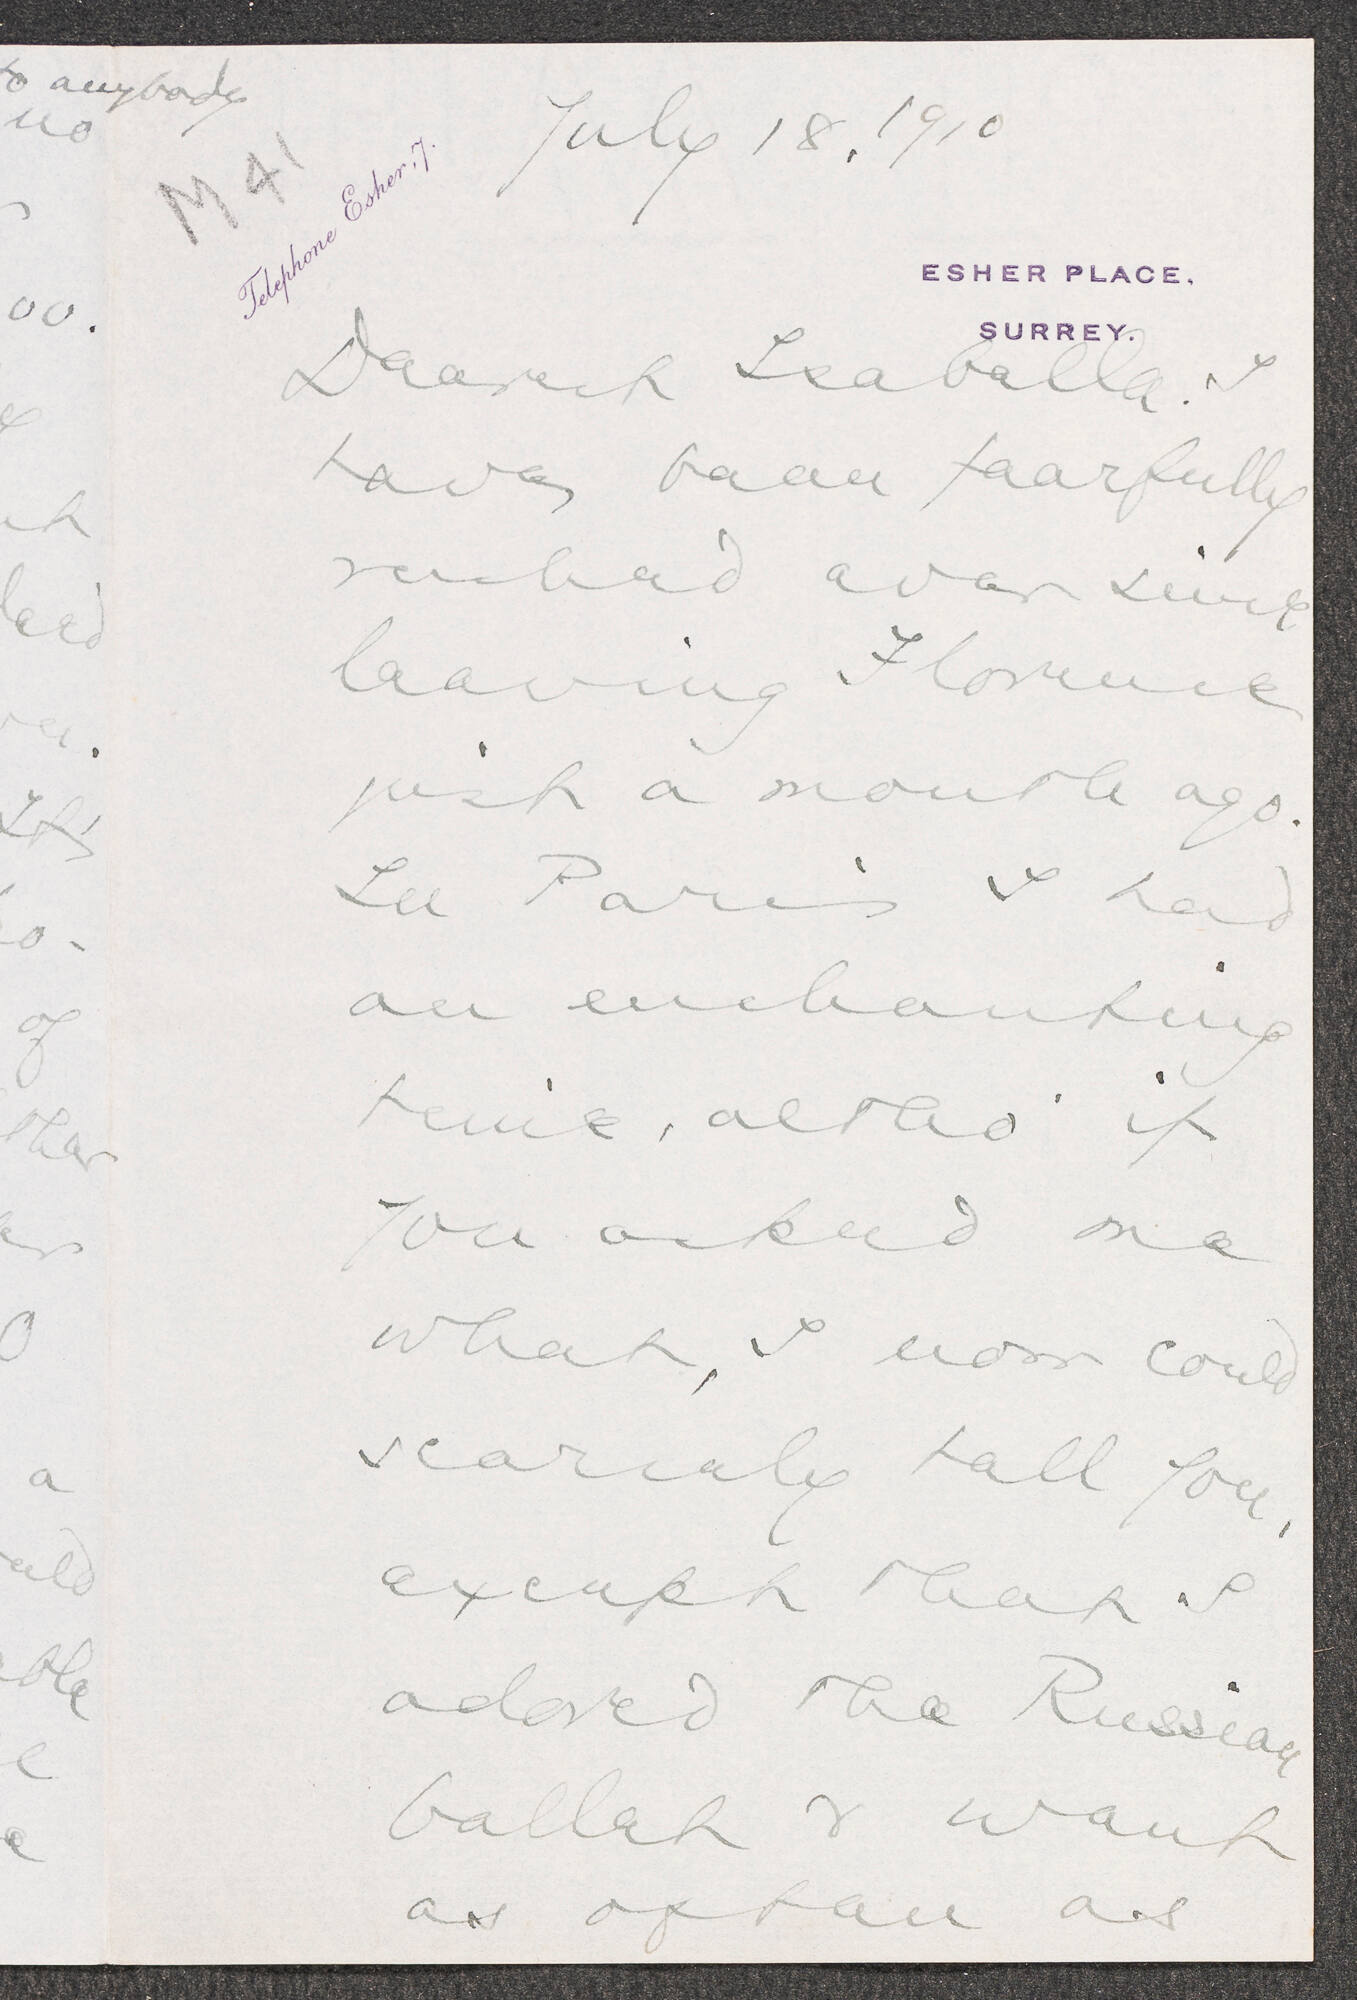 to anybody
no
oo.
It's
of
ther
a
July 18, 1910
M 41
Telephone Esher, 7.
ESHER PLACE,
SURREY.
Dearest Isabella. I
have been fearfully
rushed ever since
leaving Florence
just a month ago.
In Paris I had
an enchanting
time, altho' if
you asked me
what, I now could
scarcely tell you,
except that I
adored the Russian
ballet & went
as often as